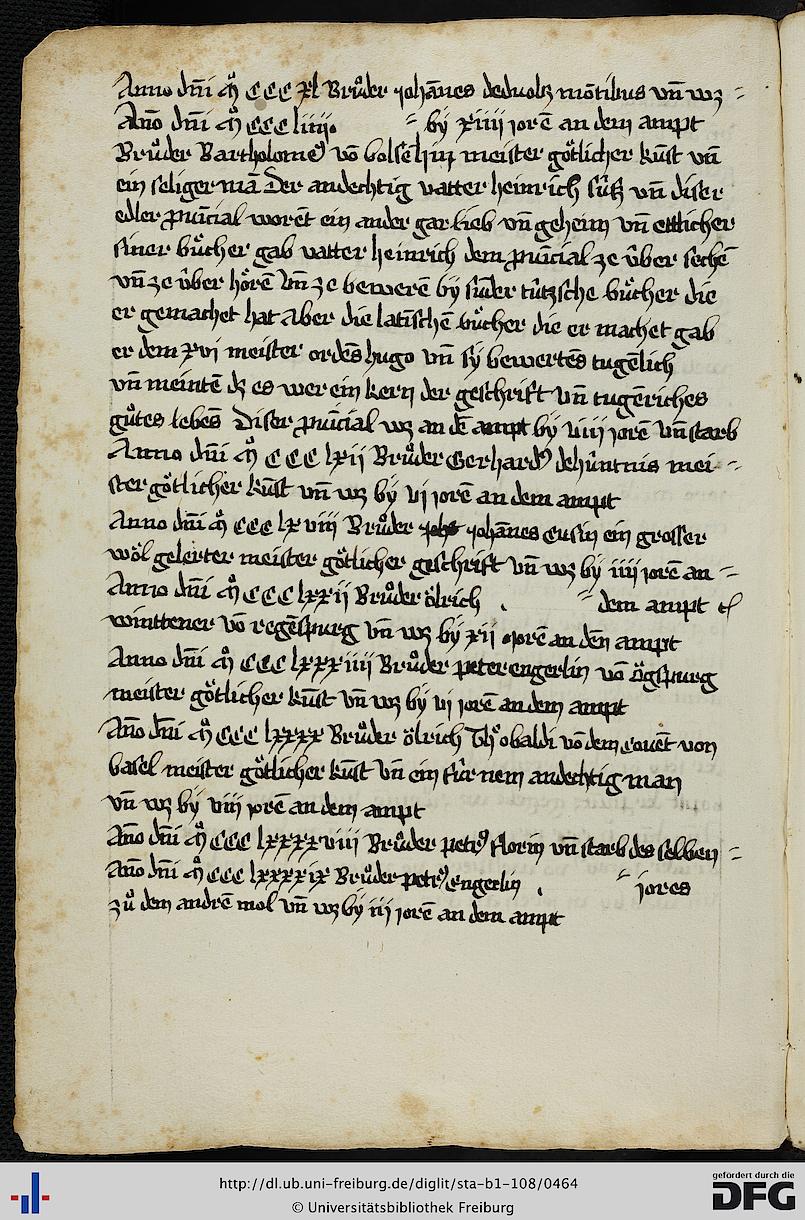 Anno dn̄i m̊ CCC xl Brůder johānes deduolz mōtibus vn̄ wz =
An̄o dn̄i m̊ CCC liiij. = by xiiij jorē an dem ampt
Brůder Bartholomeꝰ vō bolsēhin meister gȫtlicher kūst vn̄
ein seliger mā Der andechtig vatter heinrich sűs̄ vn̄ diser
edler puīcial worēt ein ander gar lieb vn̄ geheim vn̄ ettlicher
siner bücher gab vatter heinrich dem puīcial ze v̈ber sechē
vn̄ ze v̈ber hȫrē Vn̄ ze bewerē by sūder tützsche bücher die
er gemachet hat Aber die latīschē bücher die er machet gab
er dem xvi meister ordēs hugo vn̄ sÿ bewertēs tugēlich
vn̄ meintē dz es wer ein kern der geschrift vn̄ tugēriches
gůtes lebēs Diser puīcial wz an dē ampt by viiij jorē vn̄ starb
Anno dn̄i m̊ CCC lxii Brůder Gerhardꝰ dehüntnis mei =
ster götlicher kūst vn̄ wz by vj jorē an dem ampt
Anno dn̄i m̊ CCC lxviii Brůder johānes Cusin ein grosser
wöl gelerter meister götlicher geschrift vn̄ wz by iiij jorē an =
Anno dn̄i m̊ CCC lxxii Brůder ölrich . = dem ampt
winttener vō regēspurg vn̄ wz by xii jorē an den ampt
Anno dn̄i m̊ CCC lxxxiiij Brůder peter engerlin vō ögspurg
meister götlicher kūst vn̄ wz by vj jorē an dem ampt
An̄o dn̄i m̊ CCC lxxxx Brůder ölrich Thͤobaldi vō dem Couēt von
basel meister götlicher kūst vn̄ ein für nem andechtig man
vn̄ wz by viii jorē an dem ampt
An̄o dn̄i m̊ CCC lxxxxviii Brůder petrꝰ florin vn̄ starb des selben =
An̄o dn̄i m̊ CCC lxxxxix Brůder petrꝰ engerlin . = jores
zů dem andrē mol vn̄ wz by iij jorē an dem ampt
http://dl.ub.uni-freiburg.de/diglit/sta-b1-108/0464
© Universitätsbibliothek Freiburg
gefördert durch die
DFG